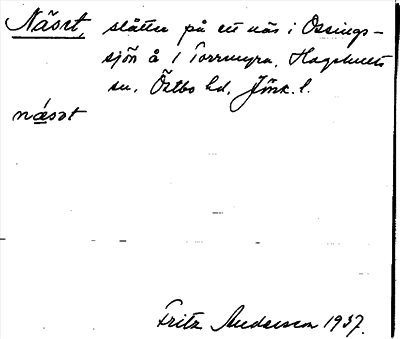 Näset, slåtter på ett näs i Ossings-
sjön å 1 Torrmyra. Hagshults
sn. Östbo hd. Jönk. l.
näsət
Fritz Anderson 1937.